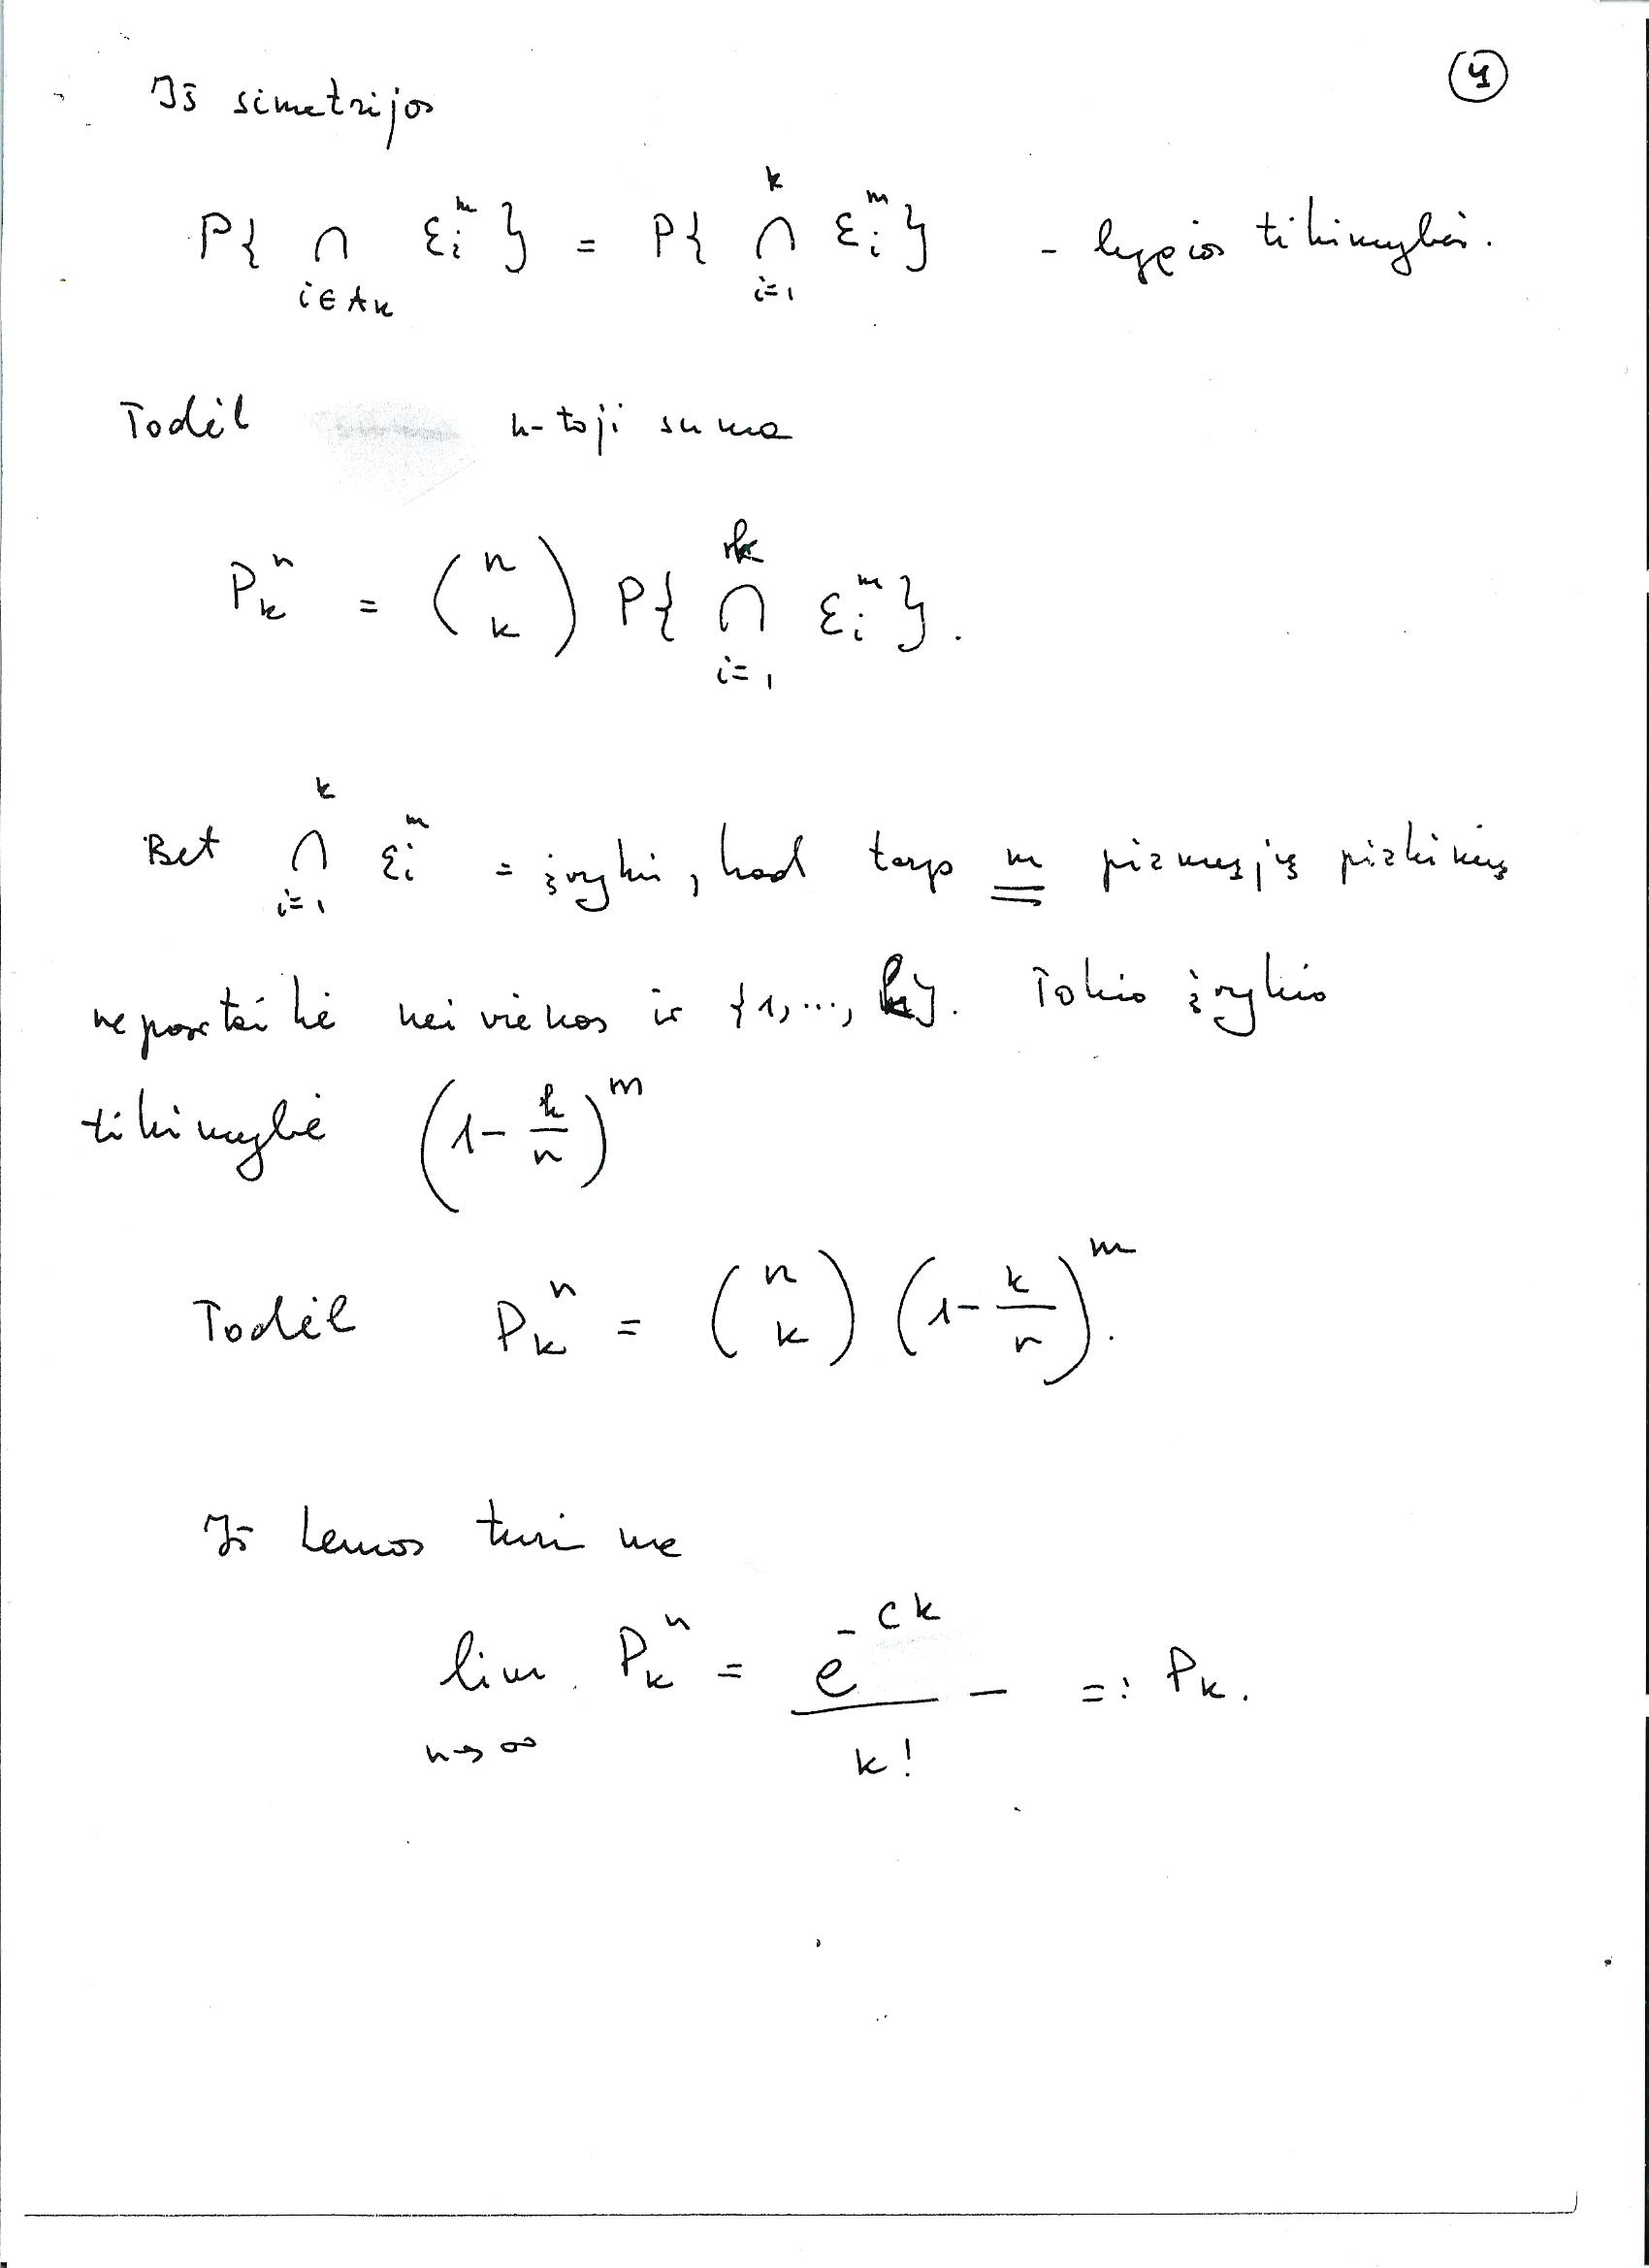 ④
Iš simetrijos
P{ ∩_{i∈A_k} ℰ_i^m } = P{ ∩_{i=1}^{k} ℰ_i^m } - lygios tikimybės.
Todėl k-toji suma
P_k^n = (n k) P{ ∩_{i=1}^{k} ℰ_i^m }.
Bet ∩_{i=1}^{k} ℰ_i^m = įvykis, kad tarp m pirmųjų pirkinių
nepasitaikė nei vienas iš {1, ..., k}. Tokio įvykio
tikimybė (1 - k/n)^m
Todėl P_k^n = (n k) (1 - k/n)^m.
Iš Lemos turime
lim_{n→∞} P_k^n = e^{-ck} / k! =: P_k.